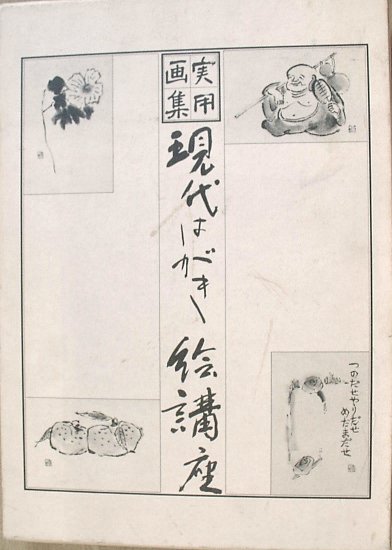 実用
画集
現代はがき絵講座
つのだせやりだせ
めだまだせ